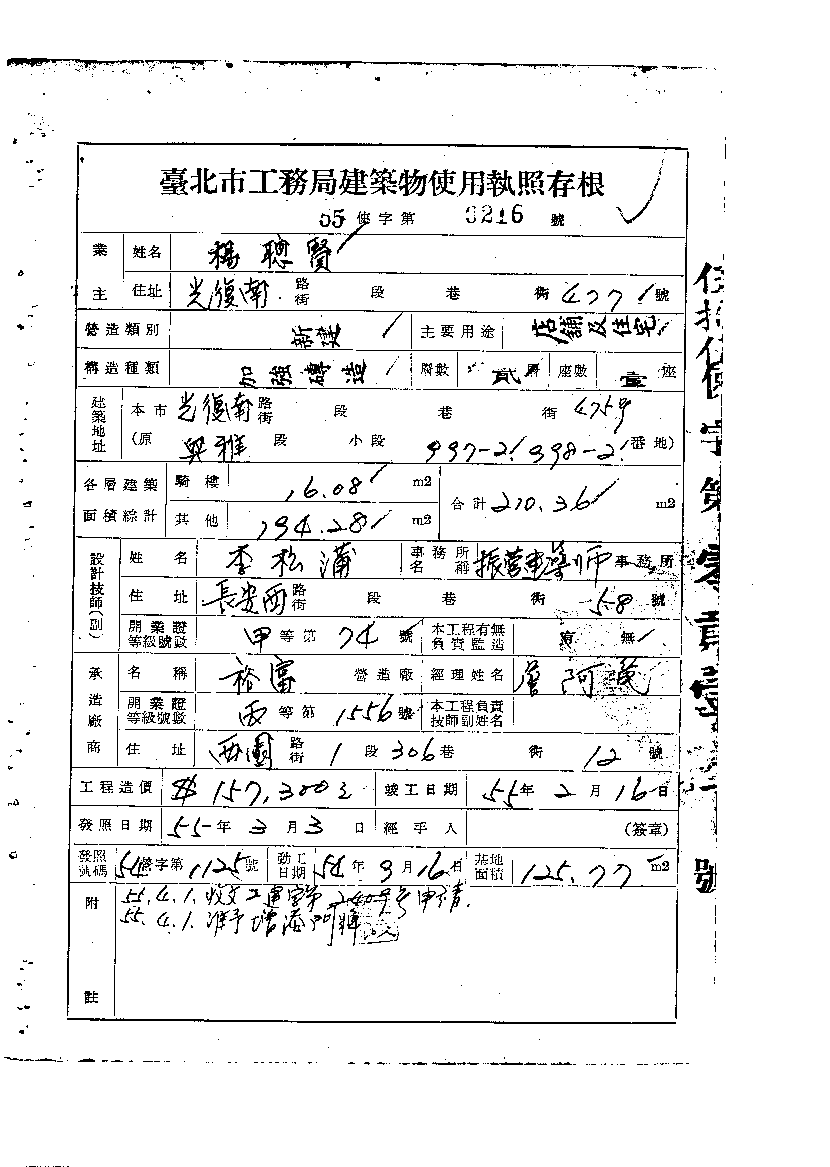 臺北市工務局建築物使用執照存根
55使字第 0216 號
業主 姓名 楊聰賢
住址 光復南 路街 段 巷 街 477 號
營造類別 新建 主要用途 店舖及住宅
構造種類 加強磚造 層數 貳層 座數 壹座
建築地址 本市 光復南 路街 段 巷 街 4759
(原 興雅 段 小段 997-2 998-2 番地)
各層建築面積綜計 騎樓 16.08 m2 合計 210.36 m2
其他 194.28 m2
設計技師(副) 姓名 李松蒲 事務所名稱 振營建築師 事務所
住址 長安西 路街 段 巷 街 58 號
開業證等級號數 甲 等第 74 號 本工程有無負責監造 有 無
承造廠商 名稱 裕富 營造廠 經理姓名 詹阿
開業證等級號數 丙 等第 1556 號 本工程負責技師副姓名
住址 西園 路街 1 段 306 巷 街 12 號
工程造價 $157,300 竣工日期 55年 2月 16日
發照日期 55年 3月 3日 經手人 (簽章)
發照號碼 54營字第1125號 動工日期 54年 9月 16日 基地面積 125.77 m2
附註 55.4.1.收文工建字第 號申請
55.4.1.准予增添
使字第零貳壹 號